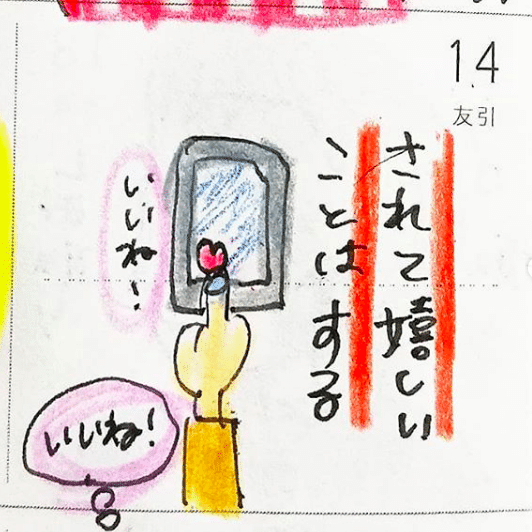 14
友引
されて嬉しい
ことは する
いいね!
いいね!